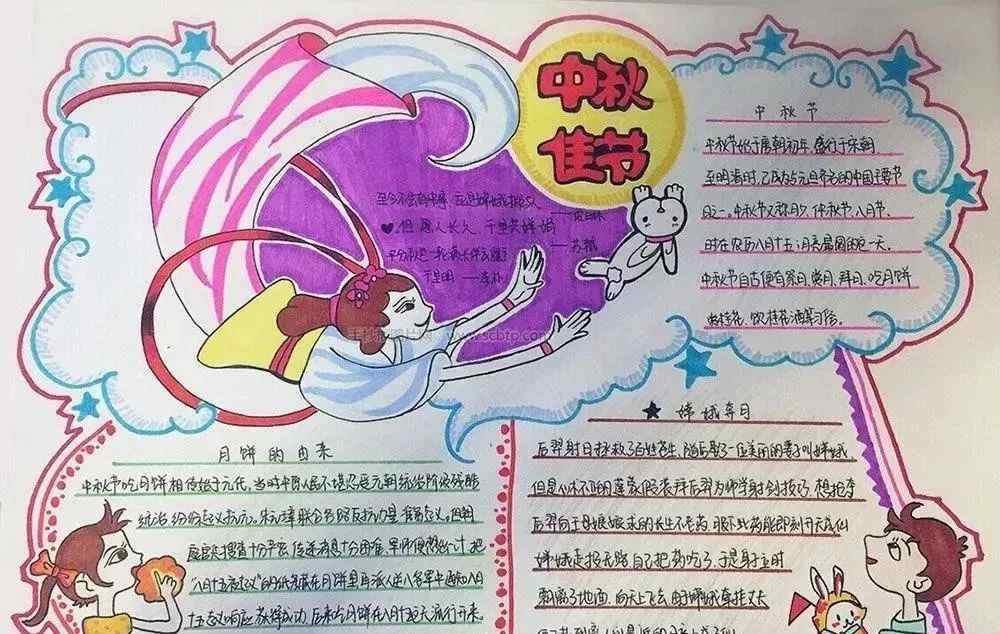 中秋
佳节
中秋节
中秋节始于唐朝初年,盛行于宋朝,
至明清时,已成为与元旦齐名的中国主要节
日之一。中秋节又称月夕、仲秋节、八月节。
时在农历八月十五;月亮最圆的这一天。
中秋节自古便有祭月、赏月、拜月、吃月饼
赏桂花、饮桂花酒等习俗。
但愿人长久,千里共婵娟
——苏轼
月饼的由来
中秋节吃月饼相传始于元代。当时中原人民不堪忍受元朝统治阶级残酷
统治 纷纷起义抗元。朱元璋联合各路反抗力量 准备起义。但朝
庭官兵搜查十分严密,传递消息十分困难,军师便想出一计,把
"八月十五夜起义"的纸条藏在月饼里再派人送入各军中通知八月
十五起义响应 苏得成功 后来吃月饼在八月十五就流行开来。
嫦娥奔月
后羿射日拯救了百姓苍生,随后娶了一位美丽的妻子叫嫦娥
但是心术不正的蓬蒙假装拜后羿为师学射剑技巧,想抢夺
后羿向王母娘娘求的长生不老药,眼下此药能即刻升天成仙
嫦娥走投无路自己把药吃了,于是身立时
飘离了地面,向天上飞去